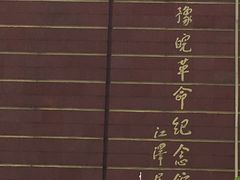 豫皖革命纪念馆
江泽民